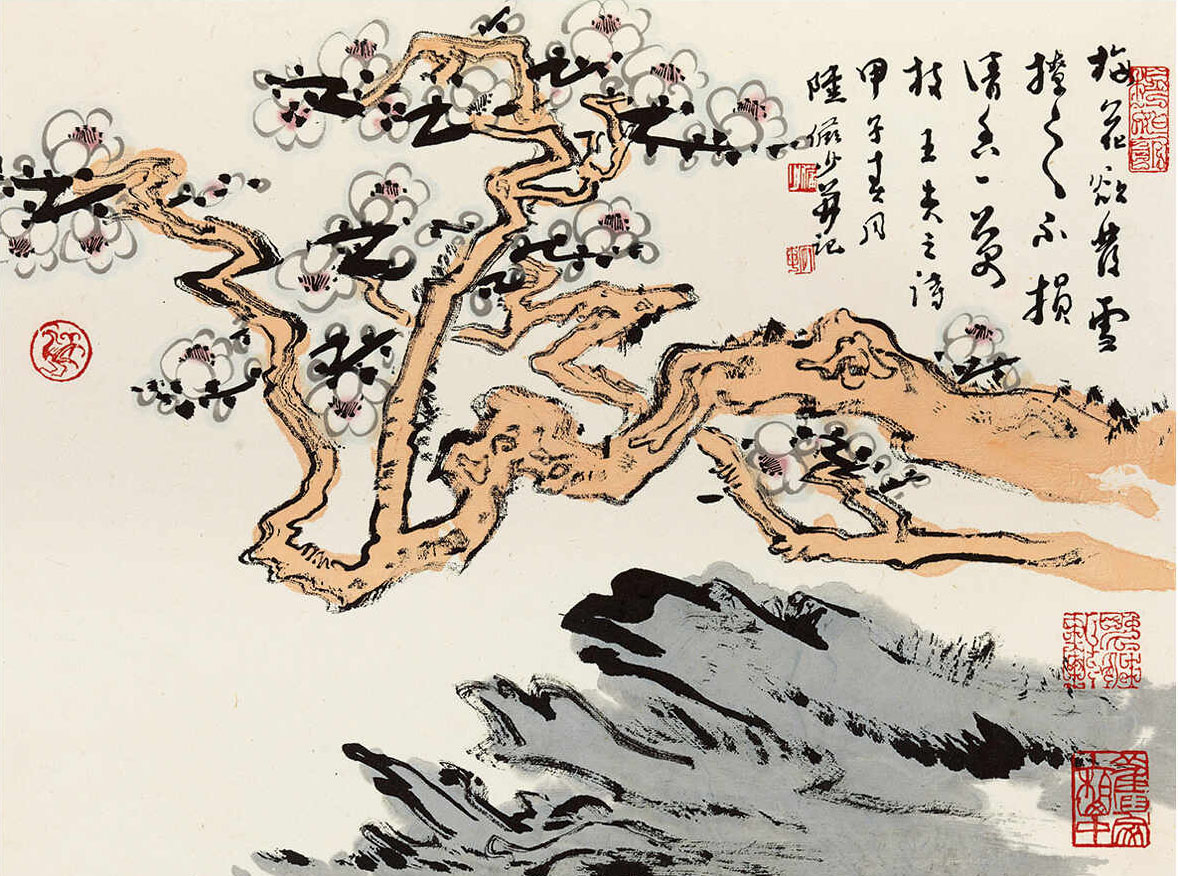 梅花欲發雪
撩之不損
清香一萬
枝 王夫之詩
甲子春月
陸儼少并記